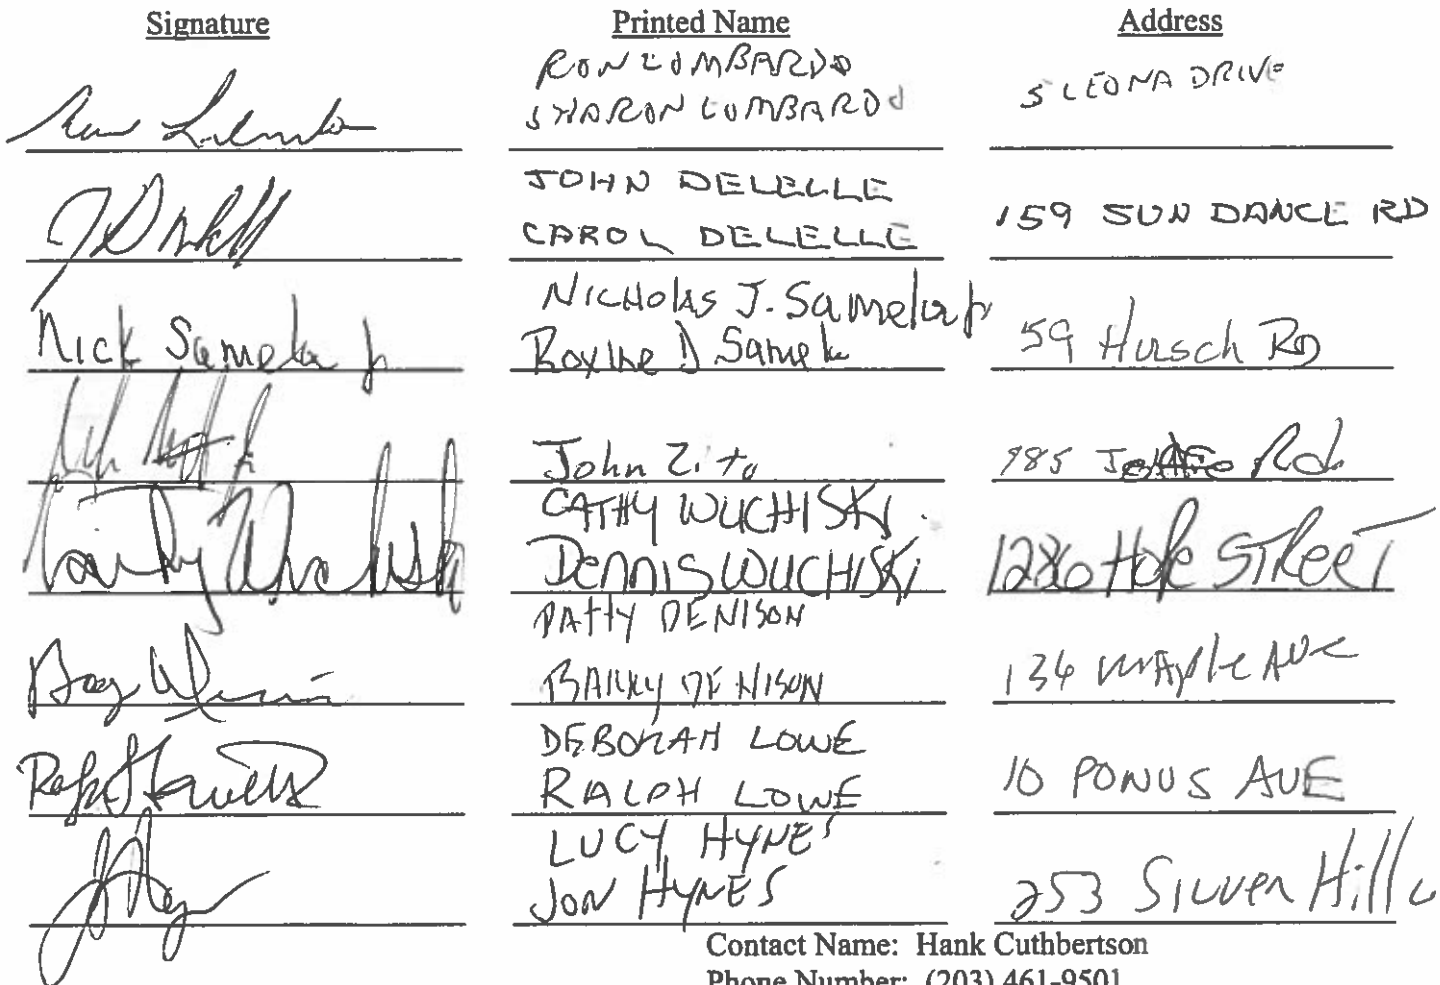 Signature Printed Name Address
RON LOMBARDO
SHARON LOMBARDO
5 LEONA DRIVE
JOHN DELELLE
CAROL DELELLE
159 SUN DANCE RD
NICHOLAS J. Samela jr
Roxine D. Samela
Nick Samela jr
59 Hirsch RD
John Zito
985 Rd
CATHY WUCHISKI
DENNIS WUCHISKI
Cathy Wuchiski
1286 Hope STReeT
PATTY DENISON
BARRY DENISON
134 MAple AVE
DEBORAH LOWE
RALPH LOWE
10 PONUS AVE
LUCY HYNES
JON HYNES
253 Silver Hill
Contact Name: Hank Cuthbertson
Phone Number: (203) 461-9501